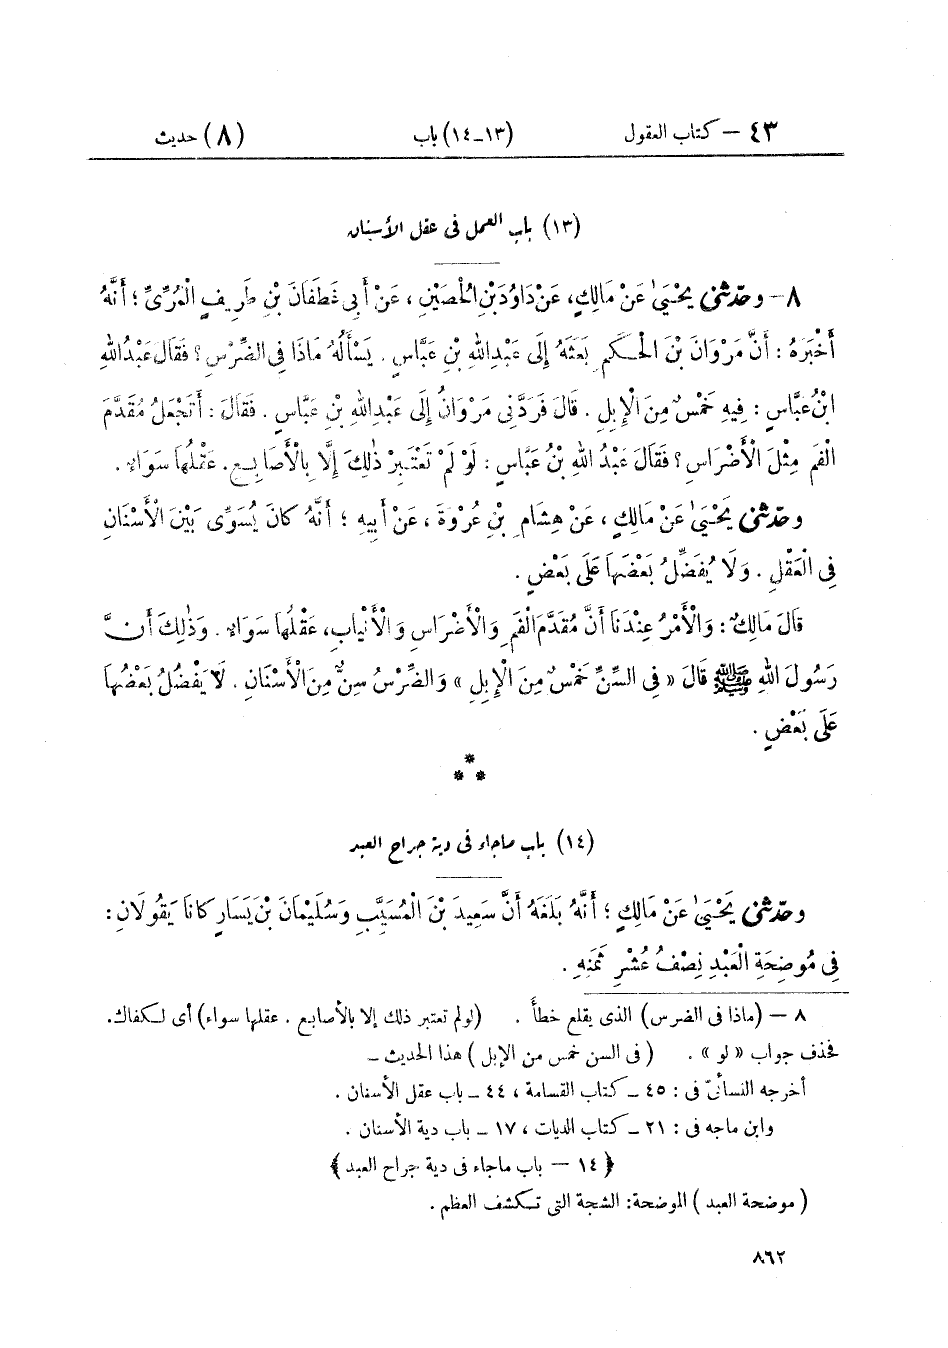 ٤٣ – كتاب العقول (١٣-١٤) باب (٨) حديث
(١٣) باب العمل فى عقل الأسنان
٨- وحدّثنى يَحْيَىٰ عَنْ مَالِكٍ، عَنْ دَاوُدَ بْنِ الْحُصَيْنِ، عَنْ أَبِى غَطَفَانَ بْنِ طَرِيفٍ الْمُرِّىِّ؛ أَنَّهُ
أَخْبَرَهُ: أَنَّ مَرْوَانَ بْنَ الْحَكَمِ بَعَثَهُ إِلَى عَبْدِ اللهِ بْنِ عَبَّاسٍ. يَسْأَلُهُ مَاذَا فِى الضِّرْسِ؟ فَقَالَ عَبْدُ اللهِ
ابْنُ عَبَّاسٍ: فِيهِ خَمْسٌ مِنَ الْإِبِلِ. قَالَ فَرَدَّنِى مَرْوَانُ إِلَى عَبْدِ اللهِ بْنِ عَبَّاسٍ. فَقَالَ: أَتَجْعَلُ مُقَدَّمَ
الْفَمِ مِثْلَ الْأَضْرَاسِ؟ فَقَالَ عَبْدُ اللهِ بْنُ عَبَّاسٍ: لَوْ لَمْ تَعْتَبِرْ ذٰلِكَ إِلَّا بِالْأَصَابِعِ. عَقْلُهَا سَوَاءٌ.
وحدّثنى يَحْيَىٰ عَنْ مَالِكٍ، عَنْ هِشَامِ بْنِ عُرْوَةَ، عَنْ أَبِيهِ؛ أَنَّهُ كَانَ يُسَوِّى بَيْنَ الْأَسْنَانِ
فِى الْعَقْلِ. وَلَا يُفَضِّلُ بَعْضَهَا عَلَى بَعْضٍ.
قَالَ مَالِكٌ: وَالْأَمْرُ عِنْدَنَا أَنَّ مُقَدَّمَ الْفَمِ وَالْأَضْرَاسِ وَالْأَنْيَابِ، عَقْلُهَا سَوَاءٌ. وَذٰلِكَ أَنَّ
رَسُولَ اللهِ ﷺ قَالَ « فِى السِّنِّ خَمْسٌ مِنَ الْإِبِلِ » وَالضِّرْسُ سِنٌّ مِنَ الْأَسْنَانِ. لَا يَفْضُلُ بَعْضُهَا
عَلَى بَعْضٍ.
*
* *
(١٤) باب ماجاء فى دية جراح العبد
وحدّثنى يَحْيَىٰ عَنْ مَالِكٍ؛ أَنَّهُ بَلَغَهُ أَنَّ سَعِيدَ بْنَ الْمُسَيَّبِ وَسُلَيْمَانَ بْنَ يَسَارٍ كَانَا يَقُولَانِ:
فِى مُوضِحَةِ الْعَبْدِ نِصْفُ عُشْرِ ثَمَنِهِ.
٨ – (ماذا فى الضرس) الذى يقلع خطأ. (لو لم تعتبر ذلك إلا بالأصابع. عقلها سواء) أى لكفاك.
فحذف جواب « لو ». (فى السن خمس من الإبل) هذا الحديث –
أخرجه النسائىّ فى: ٤٥ – كتاب القسامة، ٤٤ – باب عقل الأسنان.
وابن ماجه فى: ٢١ – كتاب الديات، ١٧ – باب دية الأسنان.
﴿ ١٤ – باب ماجاء فى دية جراح العبد ﴾
(موضحة العبد) الموضحة: الشجة التى تكشف العظم.
٨٦٢